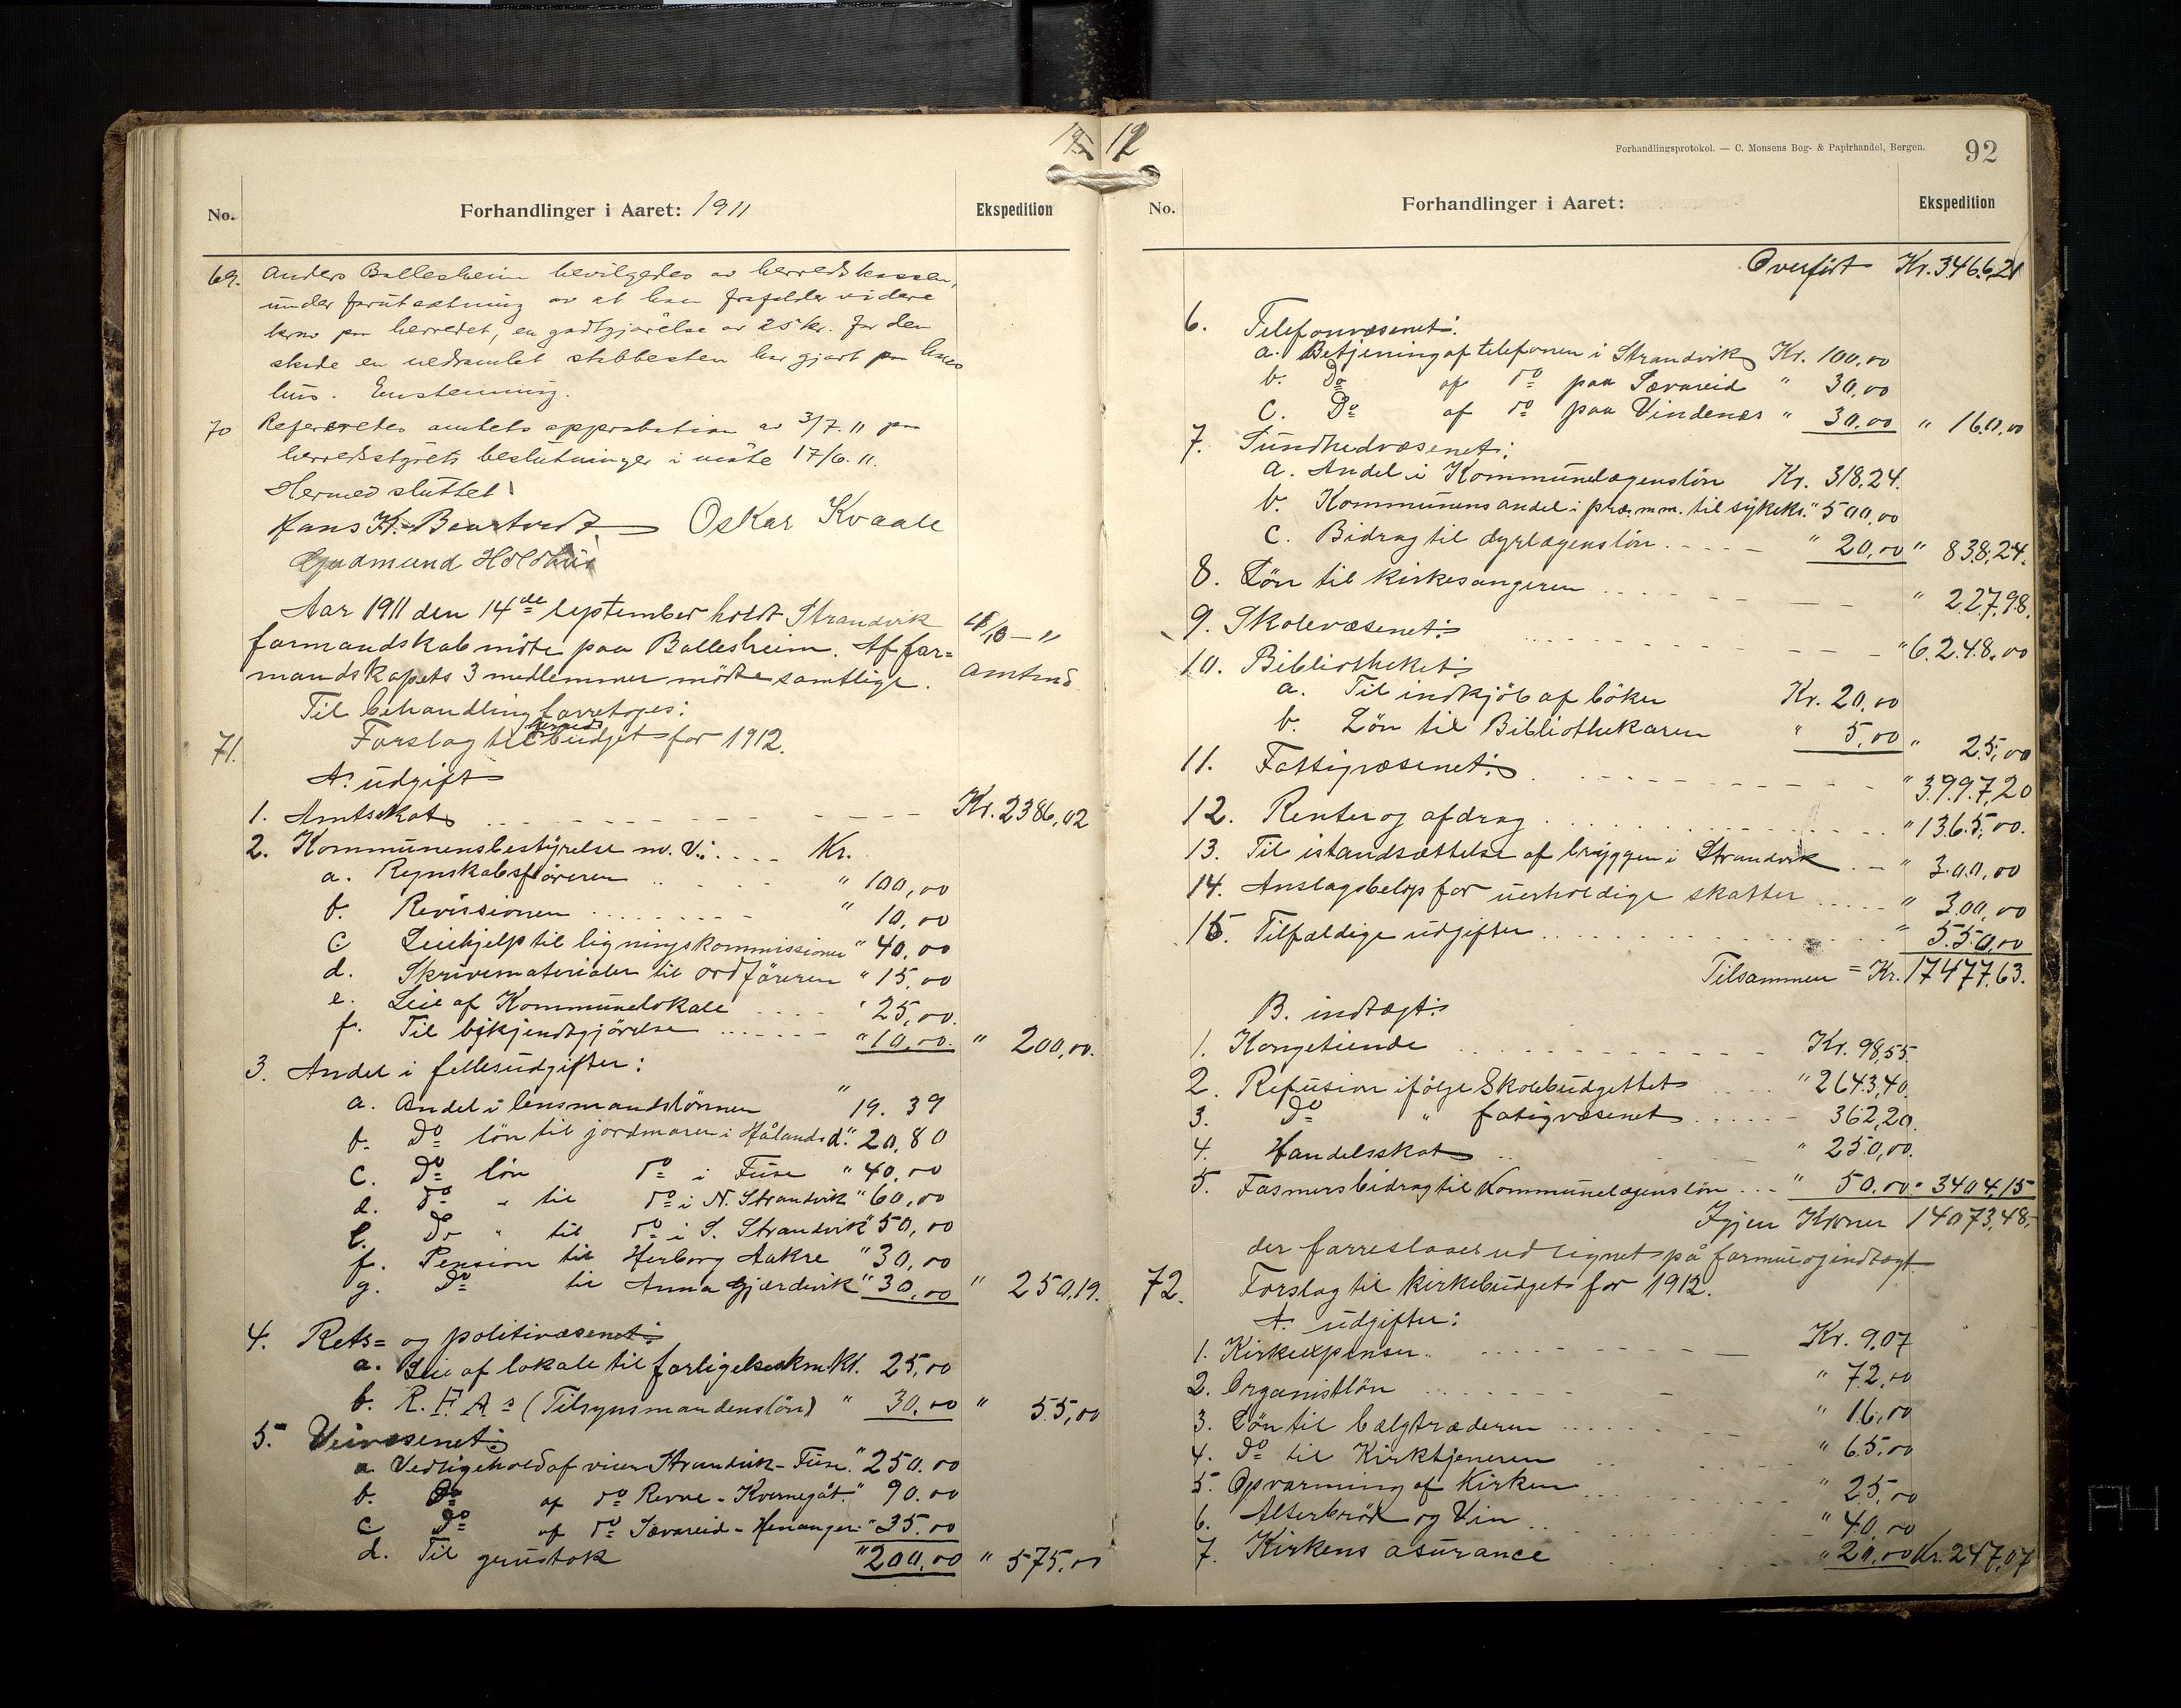 19 12
No.
Forhandlinger i Aaret: 1911
Ekspedition
69. Anders Bollesheim bevilgedes av herredskassen,
under forutsætning av at han frafalder videre
krav paa herredet, en godtgjørelse av 25 kr. for den
skade en nedramlet stabbesten har gjort paa hans
hus. Enstemmig.
70 Refereretes amtets approbation av 3/7. 11 paa
herredsstyrets beslutninger i møte 17/6. 11.
Hermed sluttet
Hans K. Oskar Kvaale
Gudmund Holdhus
Aar 1911 den 14de september holdt Strandvik
formandskab møte paa Bollesheim. Af for=
mandskapets 3 medlemmer mødte samtlige.
18/10 – "
Amtmd
Til behandling forretoges:
71. Forslag til herreds budget for 1912.
A. udgift
1. Amtsskat Kr. 2386,02
2. Kommunensbestyrelse m. V.: Kr.
a. Regnskabsføreren " 100,00
b. Revissionen " 10,00
c Leiehjelp til ligningskommissionen " 40,00
d. Skrivematerialer til ordføreren " 15,00
e. Leie af Kommunelokale " 25,00.
f. Til bekjendtgjørelse " 10,00. " 200,00.
3. Andel i fellesudgifter:
a. Andel i lensmandslønnen " 19.39
b. Do løn til jordmoren i Hålandsd. " 20,80
c. Do løn do i Fuse " 40,00
d. do " til do i N. Strandvik " 60,00
e. Do " til do i S. Strandvik " 50,00
f. Pension til Herborg Aakre " 30,00
g. Do til Anna Gjerdevik " 30,00 " 250,19.
4. Rets= og politivæsenet:
a. Leie af lokale til forligelseskm. Kr. 25,00
b. R. F. A. s (Tilsynsmandensløn) " 30,00 " 55,00
5. Veivæsenet:
a Vedligehold af veien Strandvik – Fuse " 250.00
b. Do af do Revne – Kvernegåt. " 90.00
c Do af do Sævareid – Henanger " 35.00
d. Til grustak " 200,00 " 575,00
Forhandlingsprotokol. — C. Monsens Bog- & Papirhandel, Bergen.
92
No.
Forhandlinger i Aaret:
Ekspedition
Overført Kr. 3466,21
6. Telefonvæsenet:
a. Betjening af telefonen i Strandvik Kr. 100,00
b. Do af do paa Sævareid " 30,00
c. Do af do paa Vindenes " 30,00 " 160,00
7. Sundhedvæsenet:
a. Andel i Kommunelægensløn Kr. 318,24.
b. Kommunens andel i præ. m.m. til sykeks. " 500,00
c. Bidrag til dyrlægensløn " 20,00 " 838,24.
8. Løn til kirkesangeren " 227,98.
9. Skolevæsenet: " 6248,00
10. Bibliotheket:
a. Til indkjøb af bøker Kr. 20,00
b. Løn til Bibliothekaren " 5,00 " 25,00
11. Fattigvæsenet: " 3997,20
12. Renter og afdrag " 1365,00.
13. Til istandsættelse af bryggen i Strandvik " 300,00
14. Anslagsbeløp for uerholdige skatter " 300,00
15. Tilfældige udgifter " 550,00
Tilsammen = Kr. 17477,63.
B. indtægt:
1. Kongetiende Kr. 98,55.
2. Refusion ifølge Skolebudgettet " 2643,40.
3. Do " fatigvæsenet 362,20.
4. Handelsskat " 250,00.
5. Fasmersbidrag til Kommunelægensløn " 50.00 " 3404,15
Igjen Kroner 14073,48,
der forreslaaes udlignet på formue og indtægt
72. Forslag til kirkebudget for 1912.
A. udgifter:
1. Kirkeexpenser Kr. 9,07
2. Organistløn " 72,00
3. Løn til bælgtræderen " 16,00
4. Do til Kirktjeneren " 65.00
5. Opvarming af Kirken " 25,00
6. Alterbrød og Vin " 40,00
7. Kirkens asurance " 20,00 Kr. 247,07